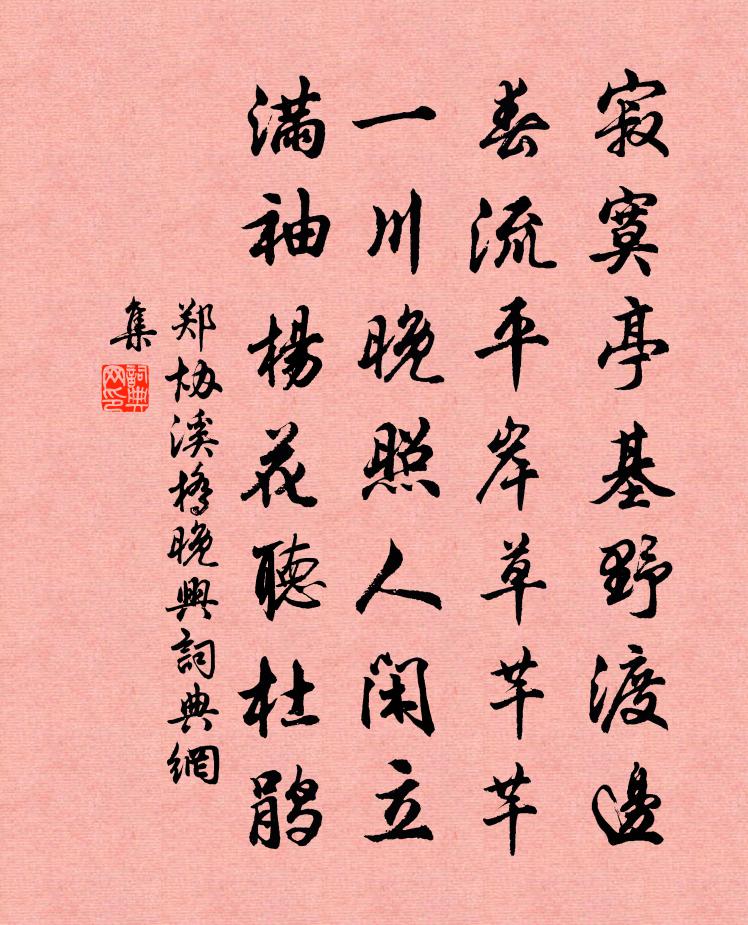 寂寞亭基野渡邊
春流平岸草芊芊
一川晚照人閑立
滿袖楊花聽杜鵑
郑协溪橋晚興詞典網
集
詞典
网印